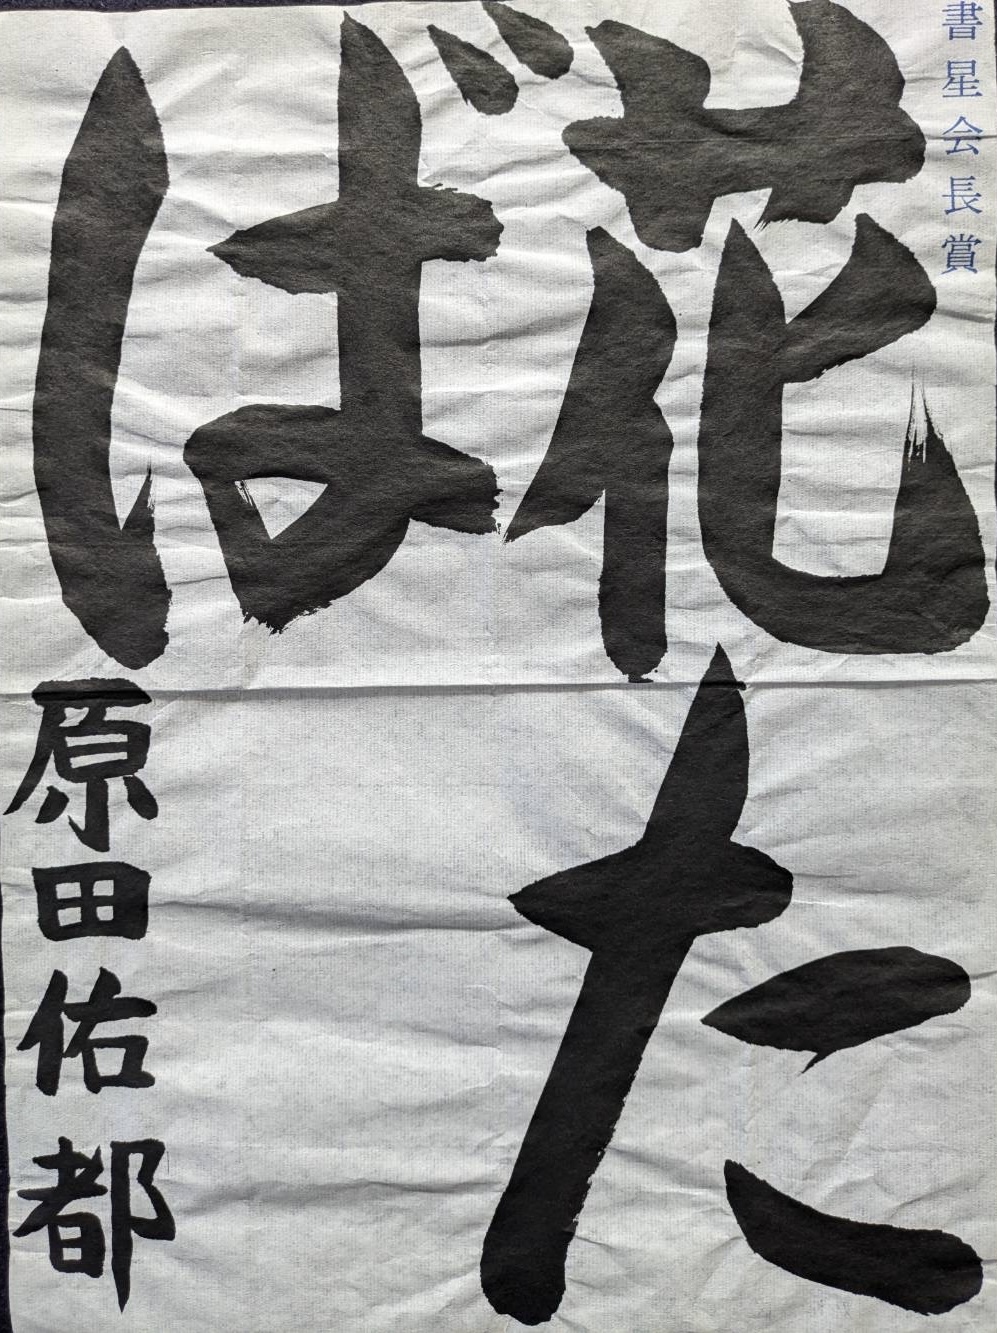 書星会長賞
花た
ば
原田佑都